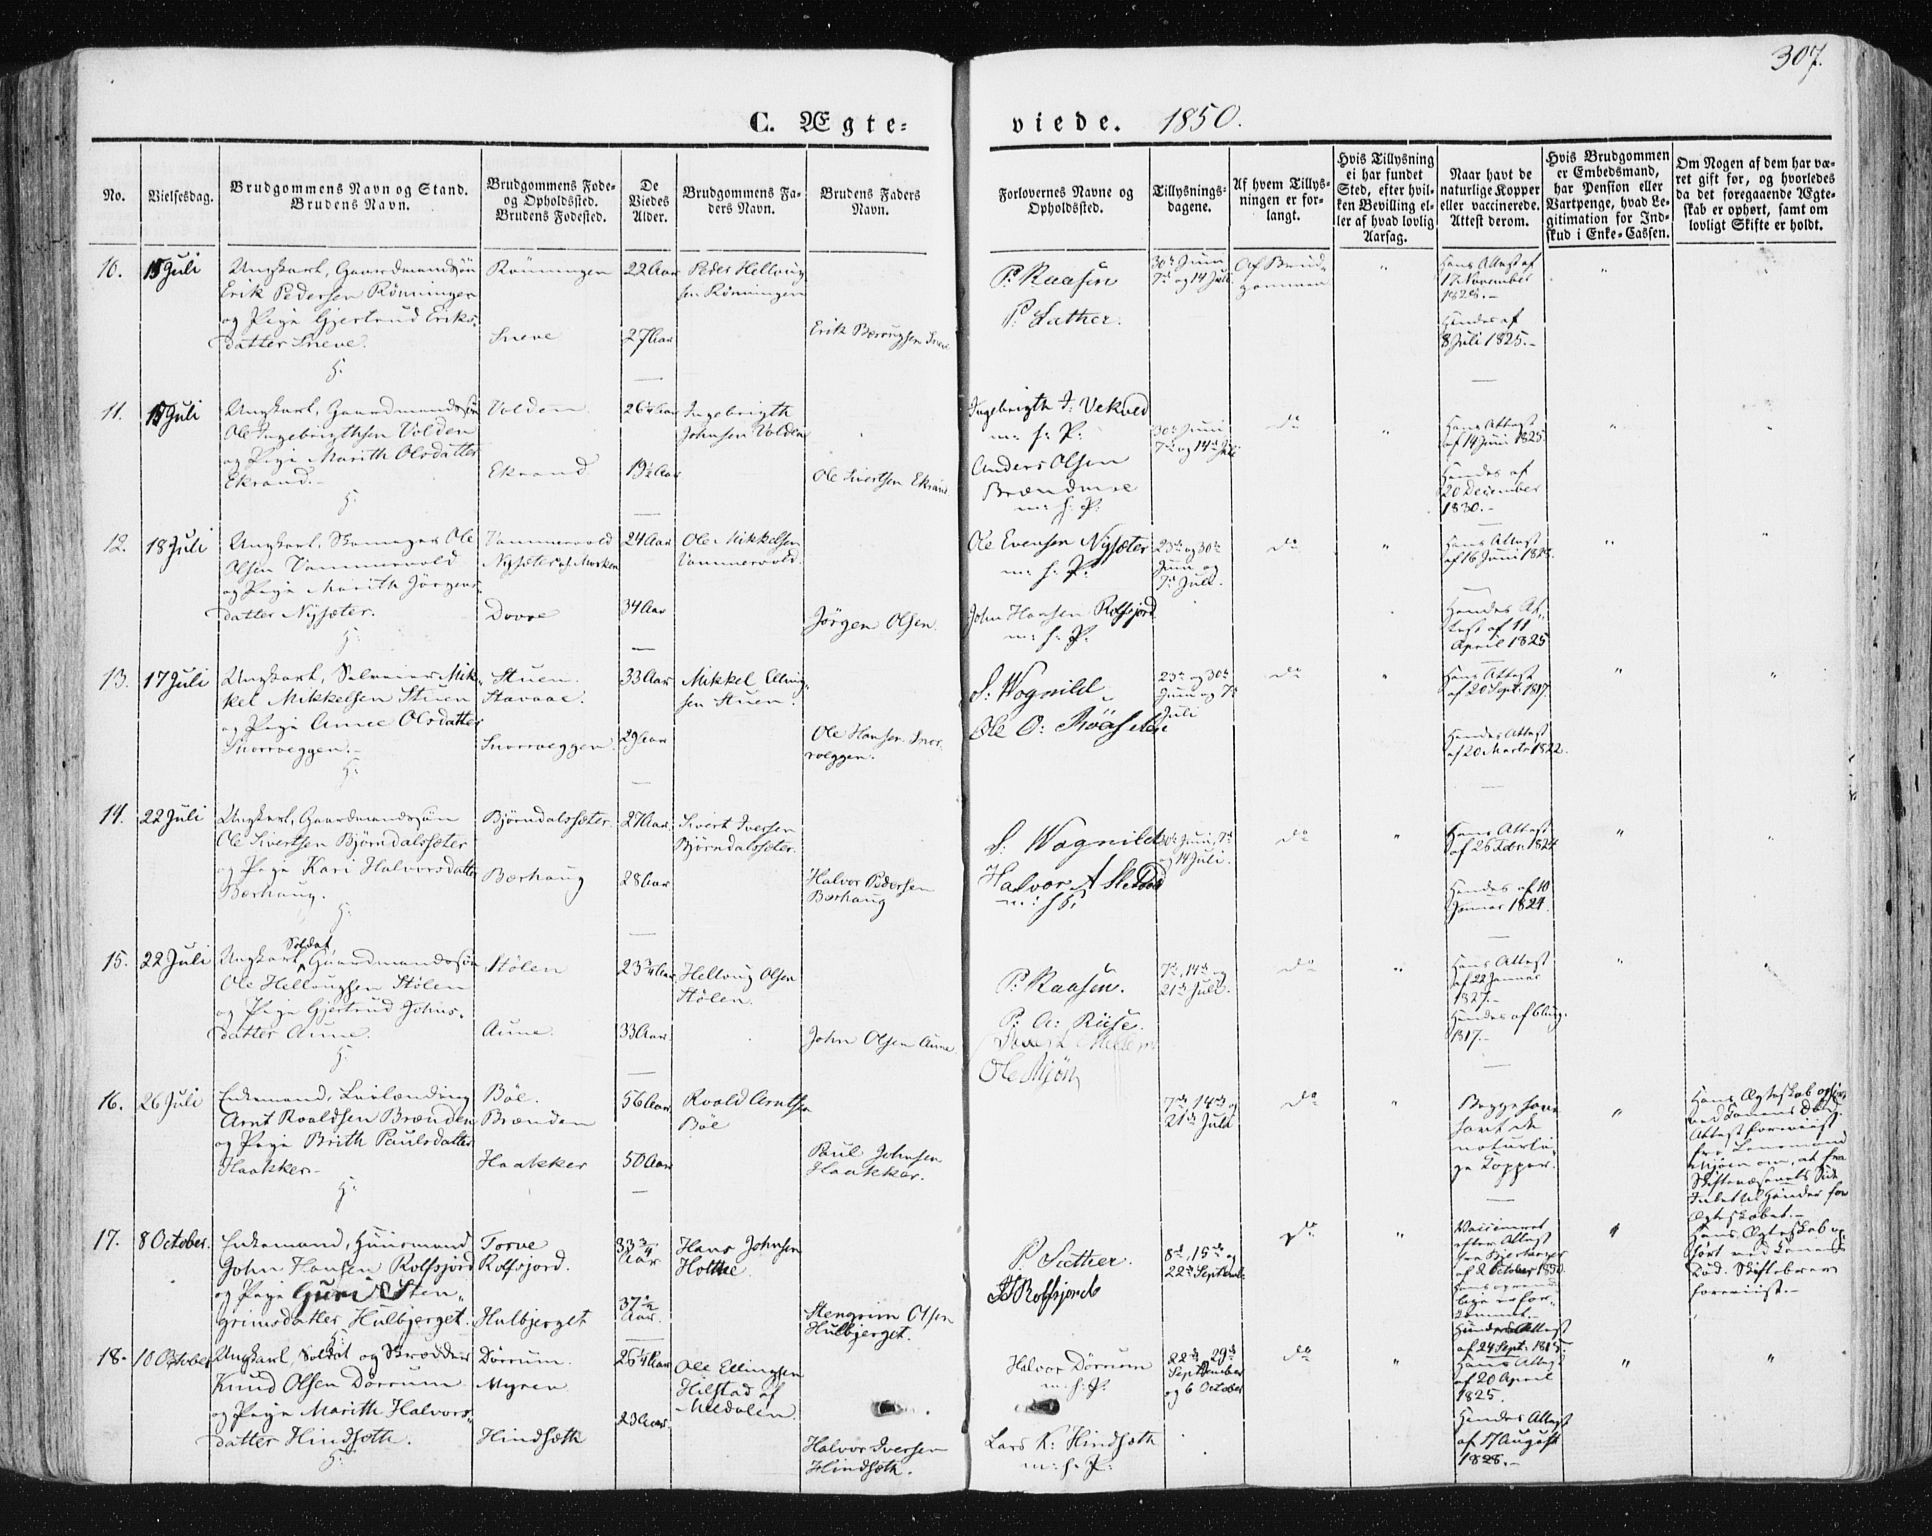 307.
C. Ægte- viede. 1850.
No.
Vielsesdag.
Brudgommens Navn og Stand.
Brudens Navn.
Brudgommens Føde-
og Opholdssted.
Brudens Fødested.
De
Viedes
Alder.
Brudgommens Fa-
ders Navn.
Brudens Faders
Navn.
Forlovernes Navne og
Opholdssted.
Tillysnings-
dagene.
Af hvem Tillys-
ningen er for-
langt.
Hvis Tillysning
ei har fundet
Sted, efter hvil-
ken Bevilling el-
ler af hvad lovlig
Aarsag.
Naar havt de
naturlige Kopper
eller vaccinerede.
Attest derom.
Hvis Brudgommen
er Embedsmand,
har Pension eller
Vartpenge, hvad Le-
gitimation for Ind-
skud i Enke-Cassen.
Om Nogen af dem har væ-
ret gift før, og hvorledes
da det foregaaende Ægte-
skab er ophørt, samt om
lovligt Skifte er holdt.
10.
15 Juli
Ungkarl, Gaardmandssøn
Erik Pedersen Rönningen
og Pige Gjertrud Eriks-
datter Sneve.
H.
Rönningen
Sneve
22 Aar
27 Aar
Peder Hellaug
sen Rönningen
Erik Bærrugsen Sneve
P. Raasen
P. Sæther.
30te Juni
7de og 14 Juli
Af Brud-
gommen
"
Hans Attest af
17 November
1828.-
Hendes af
8 Juli 1825.-
"
11.
15 Juli
Ungkarl, Gaardmandssøn
Ole Ingebrigthsen Volden
og Pige Marith Olsdatter
Ekrand.-
H.
Volden
Ekrand
26¼ Aar
19½ Aar
Ingebrigth
Johnsen Volden
Ole Sivertsen Ekrand
Ingebrigth J: Vekved
m: f: P:
Anders Olsen
Brændmoe
m: f: P:
30te Juni
7de og 14de Juli
do
"
Hans Attest
af 14 Juni 1825.
Hendes af
20 December
1830.-
"
12.
18 Juli
Ungkarl, Skomager Ole
Olsen Vammervold
og Pige Marith Jörgens-
datter Nysæter.
H:
Vammervold
Nysæter af Marken
Dovre
24 Aar
34 Aar
Ole Mikkelsen
Vammervold.
Jörgen Olsen.
Ole Evensen Nysæter
m: f: P:
John Hansen Rolfsjord
m: f: P:
23de og 30te
Juni og
7de Juli.
do
"
Hans Attest
af 16 Juni 1828.
Hendes At-
test af 11
April 1825
"
13.
17 Juli
Ungkarl, Selveier Mik-
kel Mikkelsen Stuen
og Pige Anne Olsdatter
Snorroeggen.-
H:
Stuen.
Stavaae.
Snorroeggen.
33 Aar
29 Aar
Mikkel Elling-
sen Stuen.
Ole Hansen Snor-
roeggen.
S: Wognild
Ole O: Roaas
23de og 30te
Juni og 7de
Juli
do
"
Hans Attest
af 20 Sept: 1817.
Hendes Attest
af 20 Marts 1822.
"
14.
22 Juli
Ungkarl, Gaardmandssøn
Ole Sivertsen Bjørndalssæter
og Pige Kari Halvorsdatter
Bærhaug.
H:
Bjørndalssæter.
Bærhaug
27 Aar
28 Aar
Sivert Iversen
Bjørndalssæter.
Halvor Pedersen
Bærhaug
S. Wognild
Halvor A
m: f: P:
30te Juni, 7de
og 14 Juli.
do
"
Hans Attest
af 26 Febr: 1824
Hendes af 10
Januar 1824.
"
15.
22 Juli
Soldat
Ungkarl, Gaardmandssøn
Ole Hellaugsen Stölen
og Pige Gjertrud Johns-
datter Aune.
H:
Stölen
Aune.
23¾ Aar
33 Aar.
Hellaug Olsen
Stölen.
John Olsen Aune
P. Raasen.
P: A: Riise.
7de, 14de og
21de Juli.
do
"
Hans Attest
af 22 Januar
1827.-
Hendes af 6 Aug.
1817.-
"
16.
26 Juli
Enkemand, Leilænding
Arnt Roaldsen Brænden
og Pige Brith Paulsdatter
Haakker.-
H:
Böe.
Brænden
Haakker
56 Aar
50 Aar
Roald Arntsen
Böe
Paul Johnsen
Haakker.
Ole Mjön
7de, 14de og
21de Juli
do
"
Begge have
havt de
naturli-
ge Kopper.
"
Hans Ægteskab ophört
ved Konens Död.
Attest foreviist
fra Lensmand
Mjöen om, at fra
Skiftevæsenets Side
Intet til Hinder for
Ægteskabet.-
17.
8 October.
Enkemand, Huusmand
John Hansen Rolfsjord
og Pige Guri Sten-
grimsdatter Hulbjerget.
H:
Torve
Rolfsjord.
Hulbjerget
33¾
Aar
37½
Aar.
Hans Johnsen
Holthe
Stengrim Olsen
Hulbjerget.
P. Sæther.
Rolfsjord
8de, 15de og
22de Septemb.
do
"
Vaccineret
efter Attest
fra
af 2 October 1850
Hendes Attest
af 24 Sept: 1815
"
Hans Ægteskab op-
hört ved Konens
Död. Skiftebrev
foreviist.-
18.
10 October
Ungkarl, Soldat og Skrædder
Knud Olsen Dörrum
og Pige Marith Halvors-
datter Hindsæth.
H:
Dörrum.
Myren.
Hindsæth
26¼ Aar
23 Aar.
Ole Ellingsen
Hilstad af
Meldalen.
Halvor Iversen
Hindsæth.
Halvor Dörrum
m: f: P:
Lars K: Hindsæth
m: f: P:
22de, 29de
September
og 6 October
do
"
Hans Attest
af 20 April
1825.
Hendes Attest
af 17 August
1828.-
"